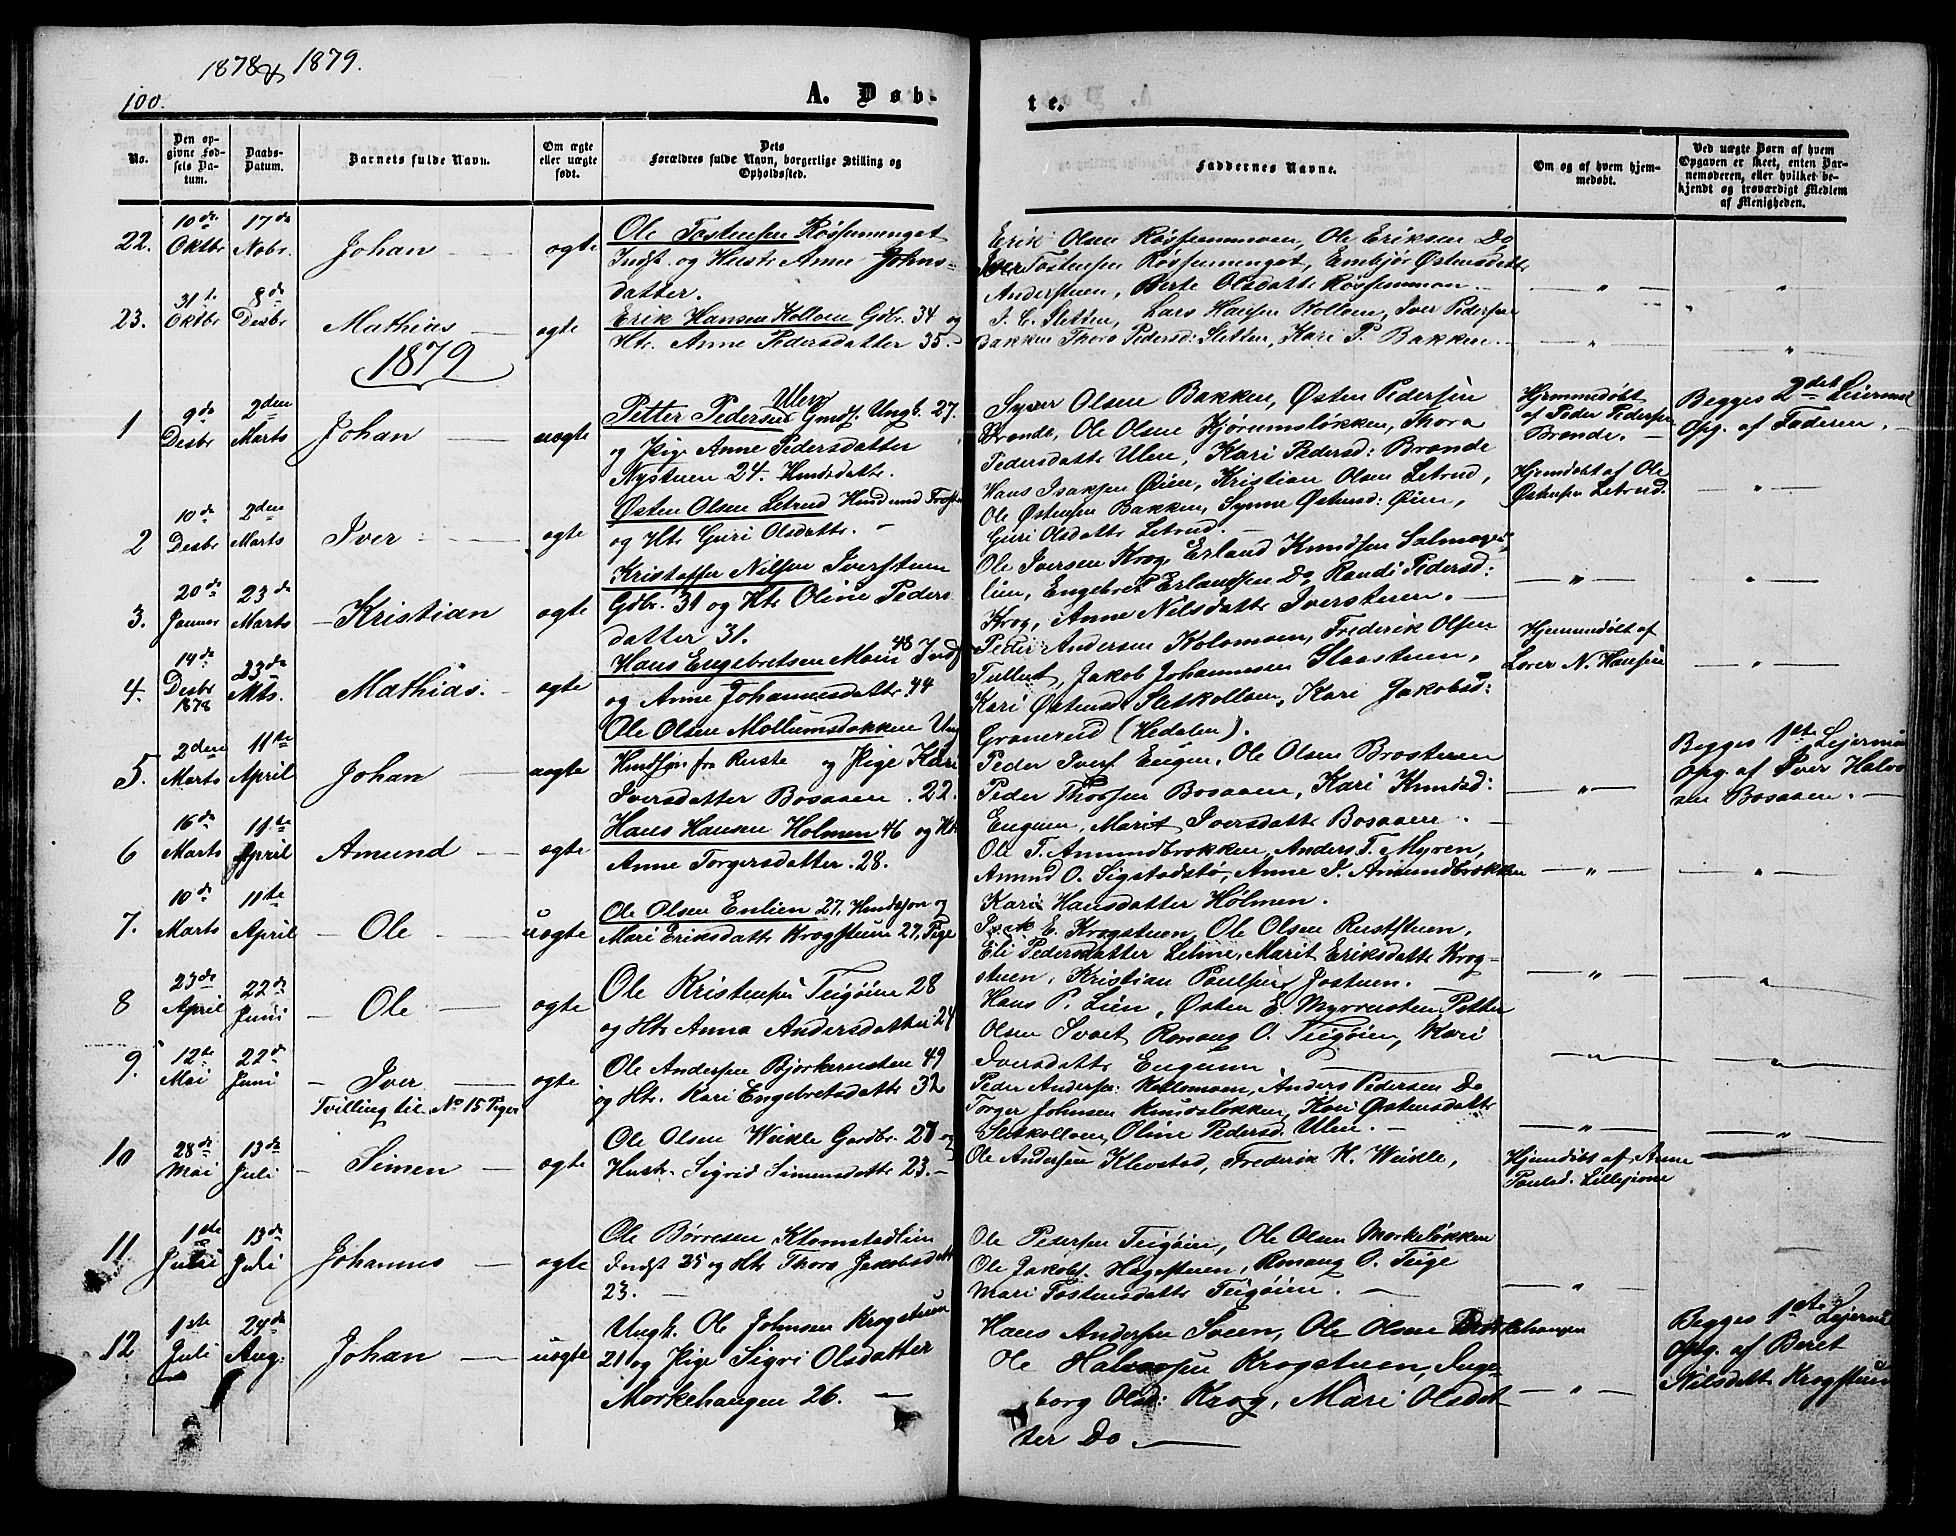 1878 & 1879.
100.
A. Døb-
te.
No.
Den op-
givne Fød-
sels Da-
tum.
Daabs-
Datum.
Barnets fulde Navn.
Om ægte
eller uægte
født.
Dets
Forældres fulde Navn, borgerlige Stilling og
Opholdssted.
Faddernes Navne.
Om og af hvem hjem-
medøbt.
Ved uægte Børn af hvem
Opgaven er skeet, enten Bar-
nemoderen, eller hvilket be-
kjendt og troværdigt Medlem
af Menigheden.
22.
10de
Oktbr
17de
Nobr.
Johan
ægte
Ole Tostensen Røssumenget
Indst. og Hustr Anne Johns-
datter.
Erik Olsen Røssummoen, Ole Eriksen Do
Iver Tostensen Røssumenget, Embjør Østensdatter
Anderstuen, Berte Olsdatter Røssummoen.
23.
31te
Oktbr
8de
Desbr
Mathias
ægte
Erik Hansen Kolloen Gdbr. 34 og
Htr. Anne Pedersdatter 35.
I. E. Sletten, Lars Hansen Kolloen, Iver Pedersen
Bakken Thora Pedersd: Sletten, Kari P. Bakken.
1879
1
9de
Desbr
2den
Marts
Johan
uægte
Petter Pedersen Ulen Gmdf. Ungk. 27.
og Pige Anne Pedersdatter
Nystuen 24. Husdatter.
Syver Olsen Bakken, Østen Pedersen
Brende, Ole Olsen Kjørumsløkken, Thora
Pedersdatter Ulen, Kari Pedersd: Brende
Hjemmedøbt
af Peder Pedersen
Brende.
Begges 2det Leiermaal
Opg. af Faderen.
2
10de
Desbr
2den
Marts
Iver
ægte
Østen Olsen Letrud
og Htr Guri Olsdatter.
Hans Isaksen Øien, Kristian Olsen Letrud,
Ole Østensen Bakken, Synne Østensd: Øien,
Guri Olsdatter Letrud.
Hjemdøbt af Ole
Østensen Letrud.
3.
20de
Januar
23de
Marts
Kristian
ægte
Kristoffer Nilsen Iverstuen
Gdbr. 31 og Htr Oline Peders
datter 31.
Ole Iversen Krog, Erland Knudsen
lien, Engebret Erlandsen Do, Randi Pedersd:
Krog, Anne Nilsdatter Iverstuen.
4.
14de
Desbr
1878
23de
Mts.
Mathias.
ægte
Hans Engebretsen Moen 48 Indst
og Anne Johannesdatter 44
Peder Andersen Kolomoen, Frederik Olsen
Tullut, Jakob Johannesen Slaastuen,
Kari Østensd: Sletkolloen, Kari Jakobsd:
Granerud (Hedalen).
Hjemmedøbt af
Lærer N. Hansen
5.
2den
Marts
11te
April
Johan
uægte
Ole Olsen Mollumsløkken Ung
Husdsøn fra Ruste og Pige Kari
Iversdatter Bosaaen. 22.
Peder Iverss Eugen, Ole Olsen Brosteuen
Peder Thorsen Bosaaen, Kari Knudsd:
Euguen, Marit Iversdatter Bosaaen.
Begges 1ste Lejermaal
Opg. af Iver Halvor
sen Bosaaen.
6
16de
Marts
11te
April
Amund
ægte
Hans Hansen Holmen 46 og Htr
Anne Torgersdatter. 28.
Ole T. Amundbrokken, Anders T. Myren,
Amund O. Sigstadstø, Anne I. Amundbrokken
Kari Hansdatter Holmen.
7.
10de
Marts
11te
April
Ole
uægte
Ole Olsen Enlien 27, Husdsøn og
Mari Eriksdatter Krogstuen 27, Pige
E. Krogstuen, Ole Olsen Ruststuen,
Eli Pedersdatter Lehne, Marit Eriksdatter Krog-
stuen, Kristian Paulsen Jostuen.
8
23de
April
22de
Juni
Ole
ægte
Ole Kristensen Teigøien 28
og Htr Anna Andersdatter 24
Hans P. Lien, Østen E. Myrvensten, Petter
Olsen Svart Ronaug O. Teigøien, Kari
Iversdatter Euguen
9.
12te
Mai
22de
Juni
Iver
Tvilling til No 15 Piger
ægte
Ole Andersen Bjørkerusten 49
og Htr. Kari Engebretsdatter 32
Peder Andersen Kollomoen, Anders Pedersen Do
Torger Johnsen Knudsløkken, Kari Østensdatter
Sletkolloen, Oline Pedersd. Ulen.
10
28de
Mai
13de
Juli
Simen
ægte
Ole Olsen Weikle Gardbr. 27 og
Hustr. Sigrid Simensdatter 23.
Ole Andersen Klevstad, Frederik H. Weikle,
Hjemdøbt af Anne
Paulsd. Lillejone
11.
1ste
Juli
13de
Juli
Johannes
ægte
Ole Børresen Klomstadlien
Indst 25 og Htr Thora Jakobsdatt
23.
Ole Pedersen Teigøien, Ole Olsen Morkeløkken
Ole Jakobs. Hagestuen, Ronaug O. Teige
Mari Tostensdatter Teigøien.
12
1ste
Juli
24de
Aug:
Johan
uægte
Ungk. Ole Johnsen Krogstuen
21 og Pige Sigri Olsdatter
Morkehaugen 26.
Hans Andersen Sveen, Ole Olsen Morkehaugen
Ole Halvorsen Krogstuen, Inge-
borg Olsd: Krog, Mari Olsdat-
ter Do.
Begges 1ste Lejermaal
Opg. af Beret
Nilsdatter Krogstuen